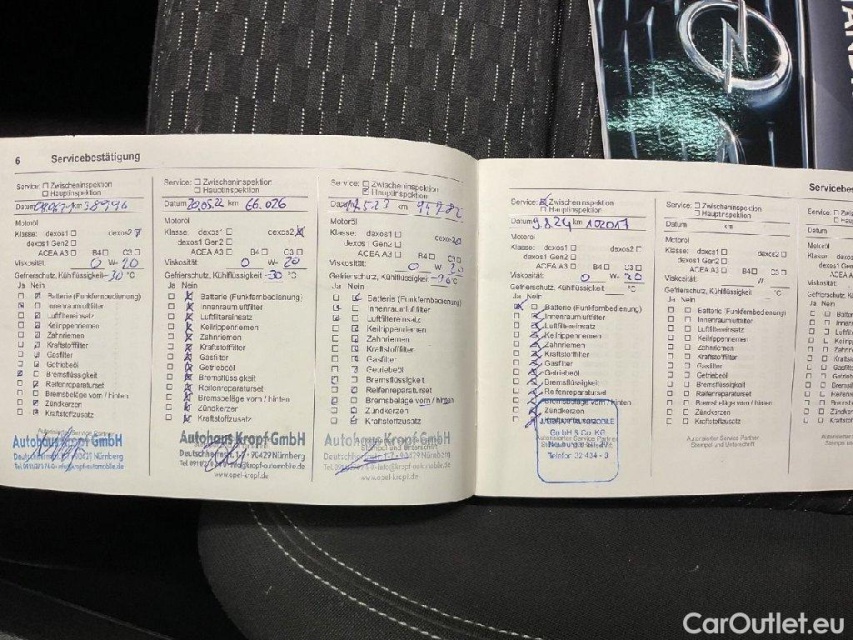 6 Servicebestätigung
Service: Zwischeninspektion
Hauptinspektion
Datum km 38996
Motoröl
Klasse: dexos1 dexos2
dexos1 Gen2
ACEA A3 B4 C3
Viskosität: 0 W- 20
Gefrierschutz, Kühlflüssigkeit -30 °C
Ja Nein
Batterie (Funkfernbedienung)
Innenraumluftfilter
Luftfiltereinsatz
Keilrippenriemen
Zahnriemen
Kraftstofffilter
Gasfilter
Getriebeöl
Bremsflüssigkeit
Reifenreparaturset
Bremsbeläge vorn / hinten
Zündkerzen
Kraftstoffzusatz
Autohaus Kropf GmbH
Deutschherrnstr. 1-7 · 90429 Nürnberg
Service: Zwischeninspektion
Hauptinspektion
Datum 20.05.22 km 66.026
Motoröl
Klasse: dexos1 dexos2
dexos1 Gen2
ACEA A3 B4 C3
Viskosität: 0 W- 20
Gefrierschutz, Kühlflüssigkeit -30 °C
Ja Nein
Batterie (Funkfernbedienung)
Innenraumluftfilter
Luftfiltereinsatz
Keilrippenriemen
Zahnriemen
Kraftstofffilter
Gasfilter
Getriebeöl
Bremsflüssigkeit
Reifenreparaturset
Bremsbeläge vorn / hinten
Zündkerzen
Kraftstoffzusatz
Autohaus Kropf GmbH
Deutschherrnstr. 1-7 · 90429 Nürnberg
www.opel-kropf.de
Service: Zwischeninspektion
Hauptinspektion
Datum km
Motoröl
Klasse: dexos1 dexos2
dexos1 Gen2
ACEA A3 B4 C3
Viskosität: 0 W- 20
Gefrierschutz, Kühlflüssigkeit °C
Ja Nein
Batterie (Funkfernbedienung)
Innenraumluftfilter
Luftfiltereinsatz
Keilrippenriemen
Zahnriemen
Kraftstofffilter
Gasfilter
Getriebeöl
Bremsflüssigkeit
Reifenreparaturset
Bremsbeläge vorn / hinten
Zündkerzen
Kraftstoffzusatz
Autohaus Kropf GmbH
Deutschherrnstr. 1-7 · 90429 Nürnberg
www.opel-kropf.de
Service: Zwischeninspektion
Hauptinspektion
Datum 9.8.24 km 102017
Motoröl
Klasse: dexos1 dexos2
dexos1 Gen2
ACEA A3 B4 C3
Viskosität: 0 W- 20
Gefrierschutz, Kühlflüssigkeit °C
Ja Nein
Batterie (Funkfernbedienung)
Innenraumluftfilter
Luftfiltereinsatz
Keilrippenriemen
Zahnriemen
Kraftstofffilter
Gasfilter
Getriebeöl
Bremsflüssigkeit
Reifenreparaturset
Bremsbeläge vorn / hinten
Zündkerzen
Kraftstoffzusatz
GmbH & Co. KG
Telefon 22 434 - 0
Service: Zwischeninspektion
Hauptinspektion
Datum km
Motoröl
Klasse: dexos1 dexos2
dexos1 Gen2
ACEA A3 B4 C3
Viskosität:
Gefrierschutz, Kühlflüssigkeit °C
Ja Nein
Batterie (Funkfernbedienung)
Innenraumluftfilter
Luftfiltereinsatz
Keilrippenriemen
Zahnriemen
Kraftstofffilter
Gasfilter
Getriebeöl
Bremsflüssigkeit
Reifenreparaturset
Bremsbeläge vorn / hinten
Zündkerzen
Kraftstoffzusatz
Autorisierter Service Partner
Stempel und Unterschrift
CarOutlet.eu